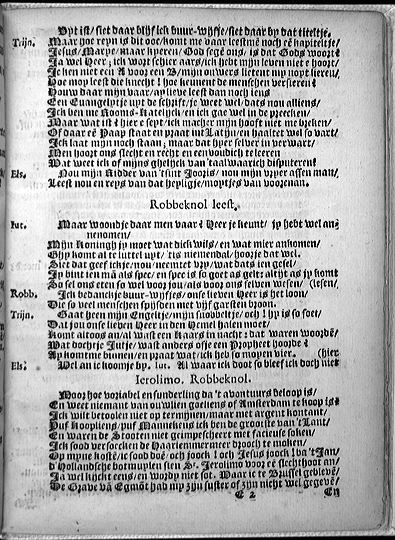 Wyst is/ siet daar blijf ick buur-wijfje/ siet daar by dat titeltje.
Trijn. Maar hoe reyn is dit oock/ komt me vaar leestme noch ee kapiteltje/
Jesus/ Marye/ maar kyeren/ God sege ons/ is dat Gods woort?
Ja wel Heer; ick wort schier aars/ ick hebt mijn leven niet e hoort/
Ick ken niet een A voor een B/ mijn ouwers lieten my nopt lieren/
Hoe moy leest die knecht! hoe keunent de menschen versieren?
Houw daar mijn vaar/ aylieve leest dan noch iens
Een Euangelytje uyt de schrift/ je weet wel/ dats nou alliens/
Ick ben me Rooms-Katelijck/ en ick gae wel in de preecken/
Maar wat ist? hier e seyt/ ick macher mijn hooft niet me breken/
Of daar ee Paap staat en praat int Latijn/ en haaltet wel so vart/
Ick laat mijn noch staan; maar dat hyer silver in verwart/
Men hoort ons slecht en recht en eenvoudich te leeren
Wat weet ick of mijns ghelijck van 'taal waarich disputeren?
Els. Nou mijn Ridder van 'tsint Jooris/ nou mijn vryer assen man/
Leest nou en reys van dat heylige/ nopjes van voorenan.
Robbeknol leest.
Jut. Maar woondje daar men vaar? Heer je keunt/ jy hebt wel an-
nenomen/
Mijn Koningh jy moet wat dick wils/ en wat mier ankomen/
Ghy komt al te luttel uyt/ 'tis niemendal/ hoorje dat wel.
Siet dat geef ickje/ nou/ neemtet vry/ wat duts ien gesel/
Jy bint ien man als spec/ en spec is so goet as gelt: altijt as jy komt
So sel ons eten so wel voor jou/ als voor ons selven wesen/ (lesen/
Robb. Ick bedanckje buur-wijfjes/ onse lieven Heer is het loon/
Die so veel menschen spijsden met vijf garsten broon.
Trijn. Gaat heen mijn Engeltje/ mijn suobbeltje/ och! jy is so soet/
Dat jou onse lieven Heer in den Hemel halen moet/
Komt altoos an/ al wast ien Kaars in nacht: dat waren woorde/
Wat dochtje Jutje/ wast anders ofje een Propheet hoorde?
Ay komt me binnen/ en praat wat/ ick heb so moyen vier. (hier
Els. Wel an ic koom je by. Jut. Al waar ick doot so bleef ick doch niet
Ierolimo. Robbeknol.
Mooy hoe variabel en sunderling da 't avontuurs deloop is/
En weet niemant van ouwilen goeliens of Amsterdam te koop is?
Ick wilt betoolen niet op termijnen/ maar met argent kontant/
Puf Koopliens/ puf Mannekens ick ben de grootste van 't Lant/
En waren de Strooten niet geimpescheert met facieuse soken/
Ick sood versoecken de Haarlemmermeer drooch te moken/
Op myne koste/ ic sood doe/ och joock! och Jesus joock! va 't Jan/
d'Hollandsche botmuylen sien Sr. Jerolimo voor ee slechthoot an/
Ja wel kijckt eens/ en wordy niet sot. Waar ic te Brussel gebleve/
De Grave va Egmot had my zijn suster of zijn nicht wel gegeve/
E 2 En